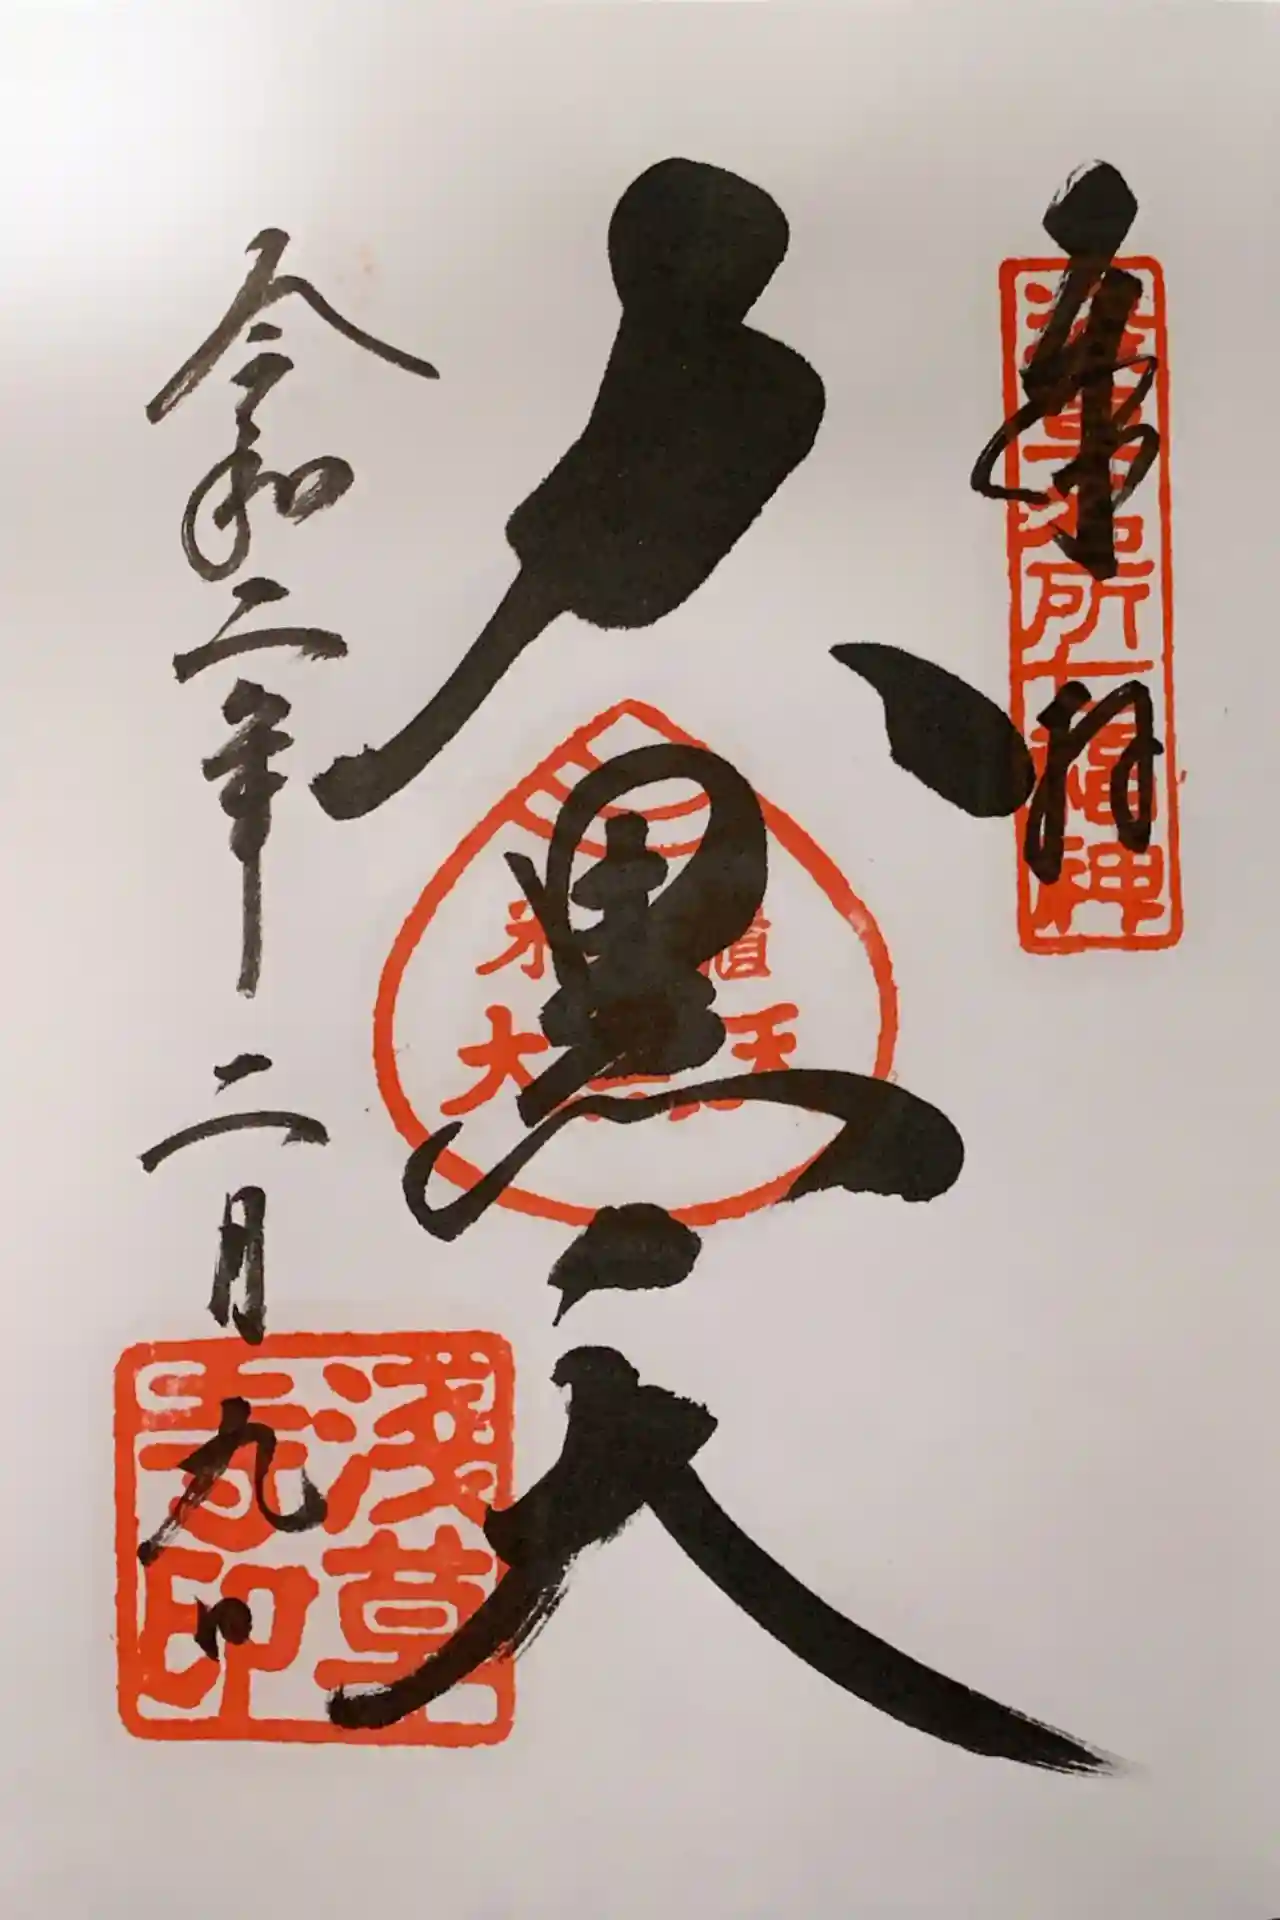 奉拝
浅草名所七福神
大黒天
米櫃
大黒天
令和二年二月九日
浅草
寺印